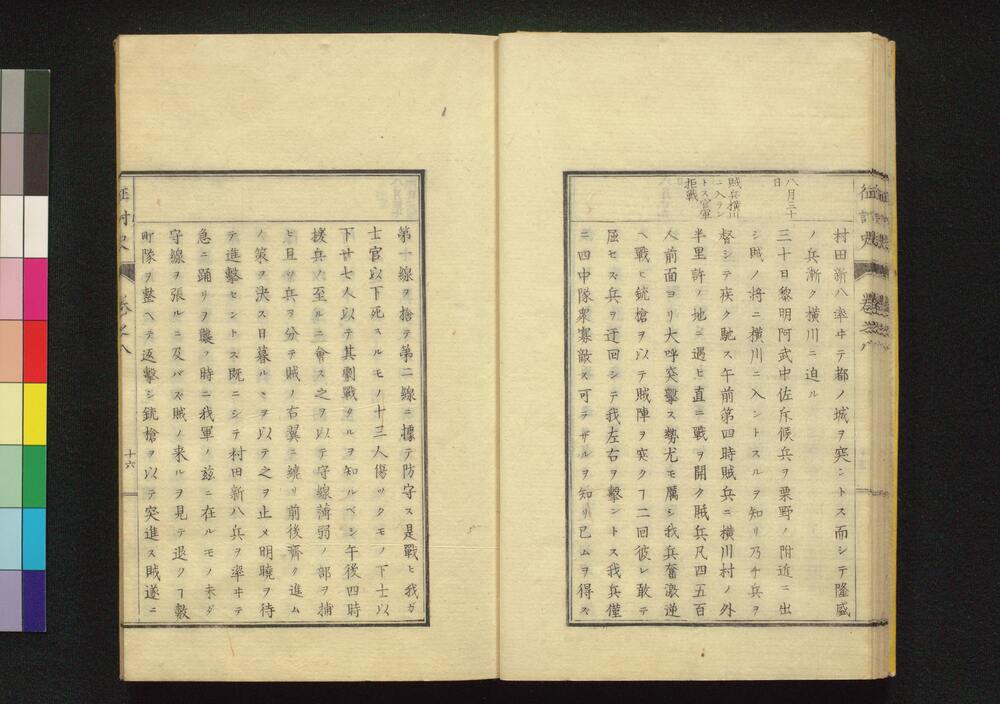 八月三十
日
賊兵横川
ニ入ラン
トス官軍
拒戰
村田新八率ヰテ都ノ城ヲ突ントス而シテ隆盛
ノ兵漸ク横川ニ迫ル
三十日黎明阿武中佐斥候兵ヲ栗野ノ附近ニ出
シ賊ノ將ニ横川ニ入ントスルヲ知リ乃チ兵ヲ
督シテ疾ク馳ス午前第四時賊兵ニ横川村ノ外
半里許ノ地ニ遇ヒ直ニ戰ヲ開ク賊兵凡四五百
人前面ヨリ大呼突擊ス勢尤モ厲シ我兵奮激逆
ヘ戰ヒ銃槍ヲ以テ賊陣ヲ突クヿ二回彼レ敢テ
屈セス兵ヲ迂回シテ我左右ヲ擊ントス我兵僅
ニ四中隊衆寡敵ス可ラザルヲ知リ已ムヲ得ス
第一線ヲ捨テ第二線ニ據テ防守ス是戰ヒ我ガ
士官以下死スルモノ十三人傷ツクモノ下士以
下廿七人以テ其劇戰タルヲ知ルベシ午後四時
援兵ノ至ルニ會ス之ヲ以テ守線薄弱ノ部ヲ補
ヒ且ツ兵ヲ分テ賊ノ右翼ニ繞リ前後齊ク進ム
ノ策ヲ決ス日暮ルヽヲ以テ之ヲ止メ明曉ヲ待
テ進擊セントス既ニシテ村田新八兵ヲ率ヰテ
急ニ踊リヲ襲フ時ニ我軍ノ茲ニ在ルモノ未ダ
守線ヲ張ルニ及バズ賊ノ来ルヲ見テ退クヿ數
町隊ヲ整ヘテ返擊シ銃槍ヲ以テ突進ス賊遂ニ
卷之八
十六